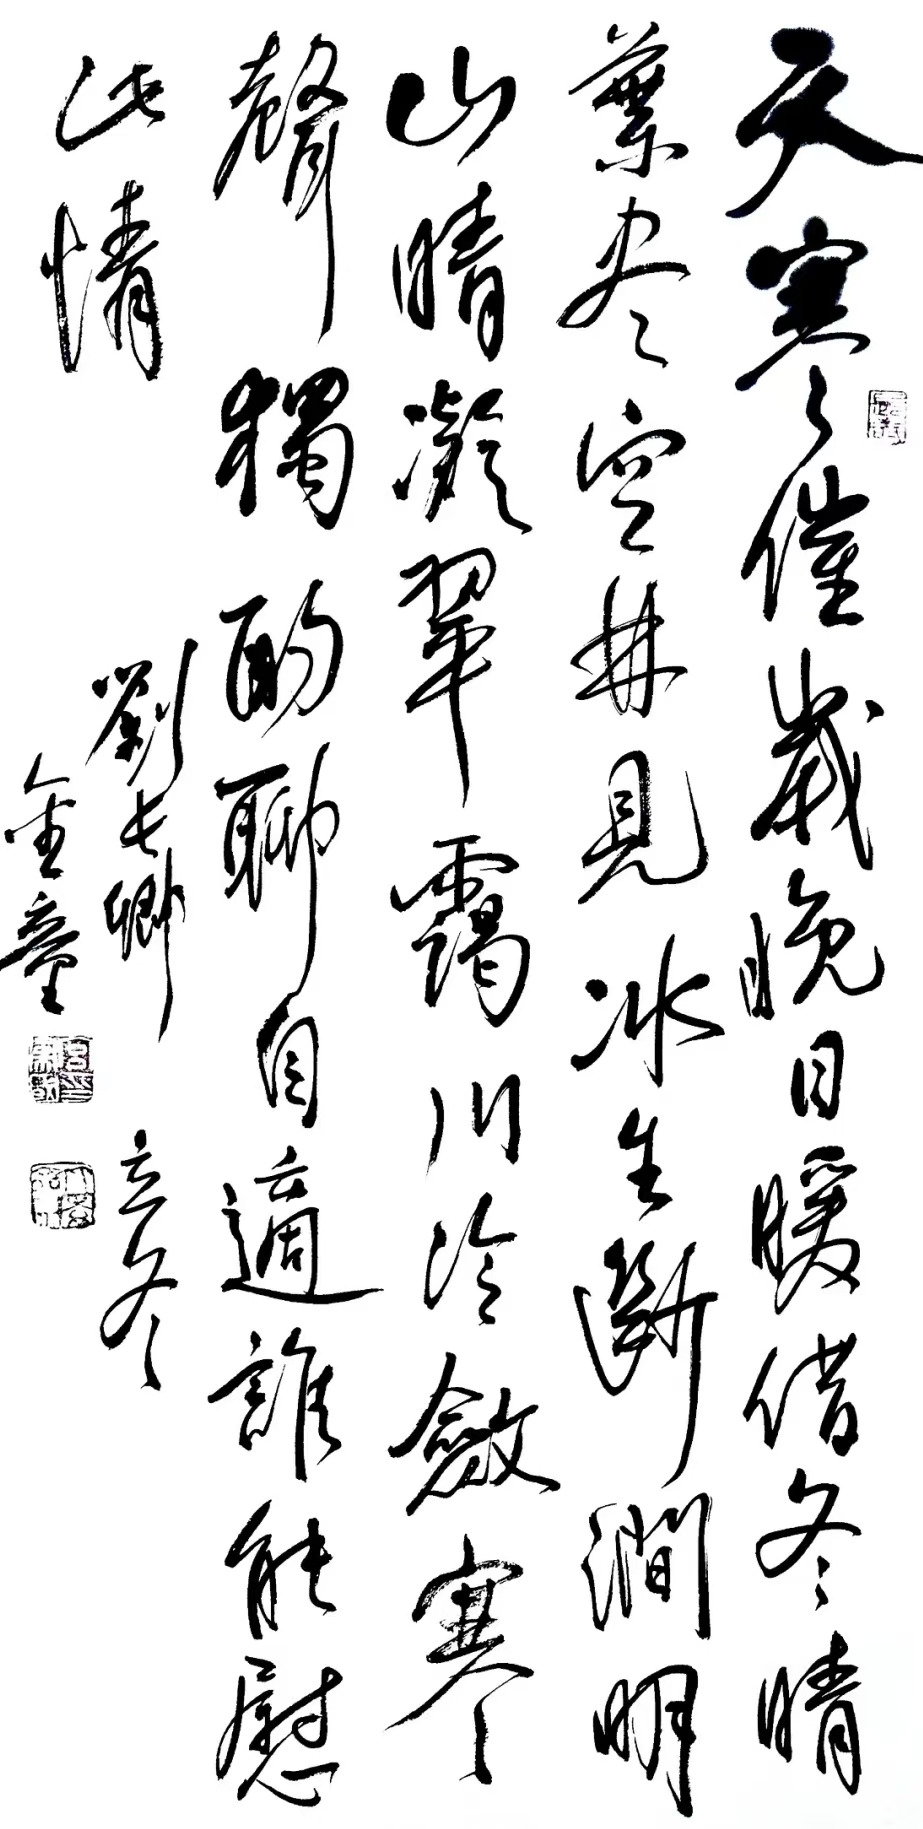 天寒催歲晚日暖借冬晴
葉尽空林見冰生断澗明
山晴凝翠靄川冷斂寒
聲獨酌聊自適誰能慰
此情
劉長卿 立冬
金童